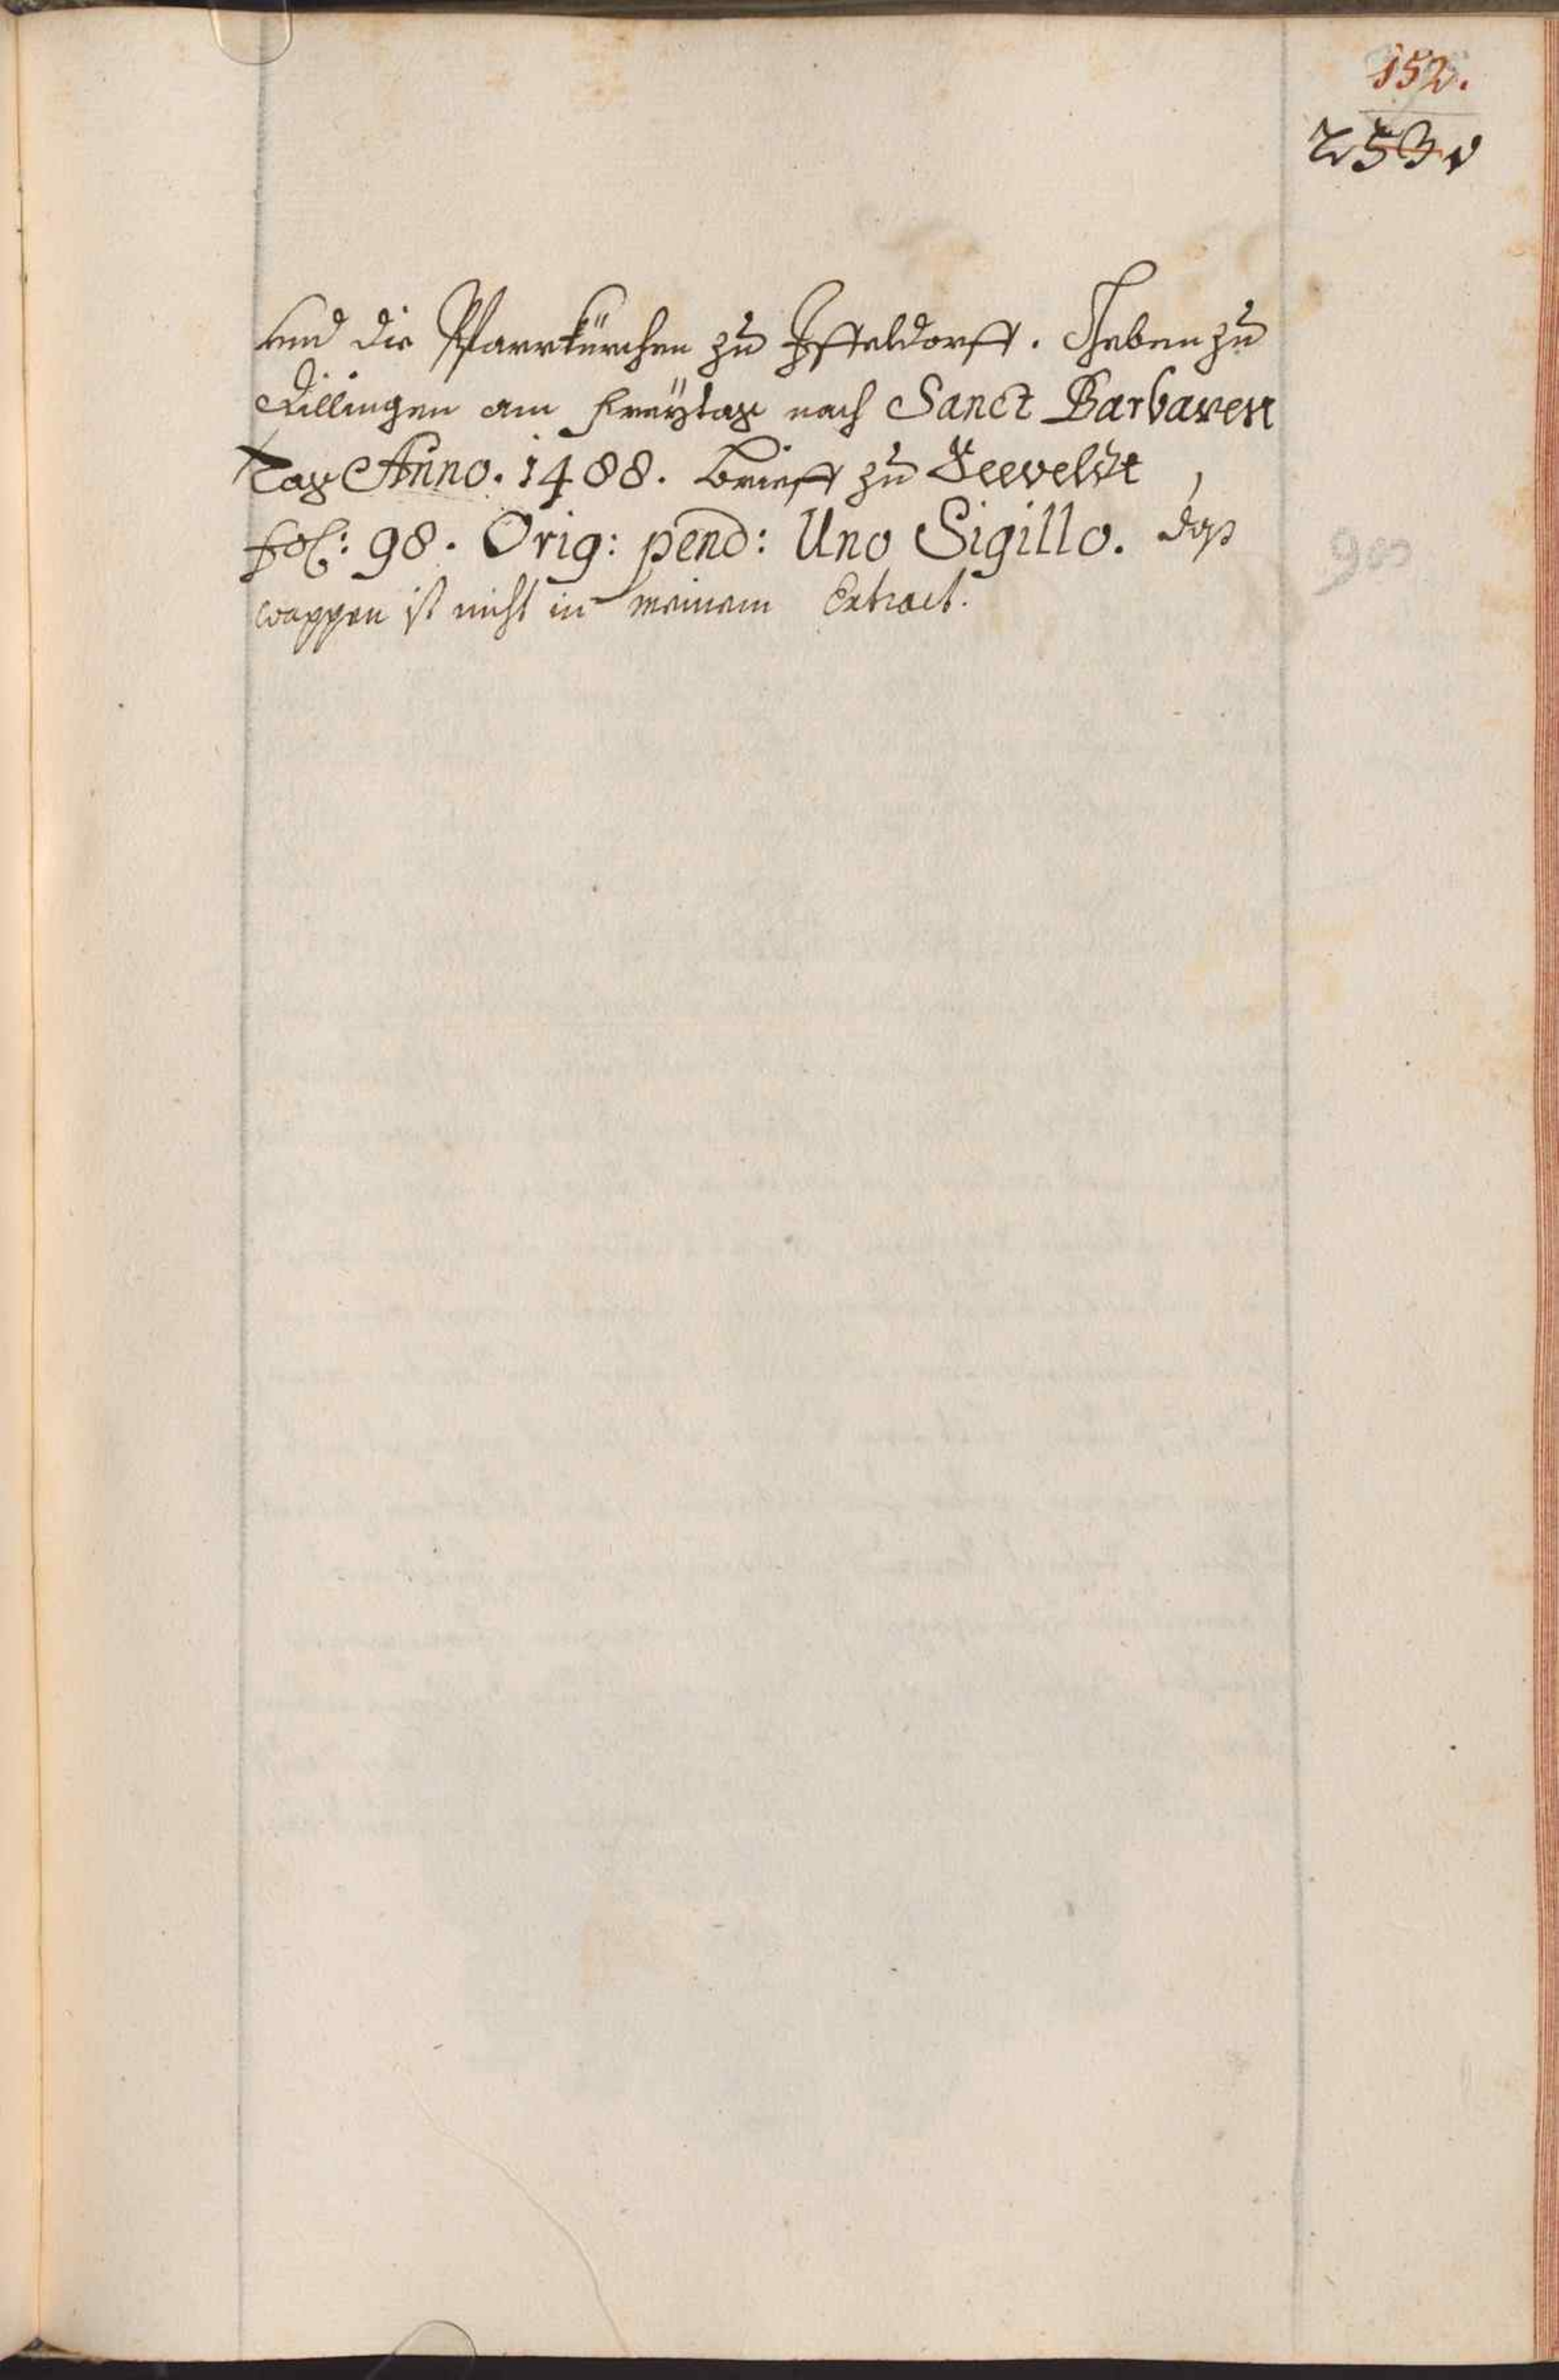 152.
253.
und die Pfarrkürchen zu Iffeldorff. Geben zu
Dillingen am Freÿtag nach Sanct Barbaren
Tag Anno. 1488. brieff zu Seeveldt
fol: 98. Orig: pend: Uno Sigillo. daß
wappen ist nicht in meinem Extract.